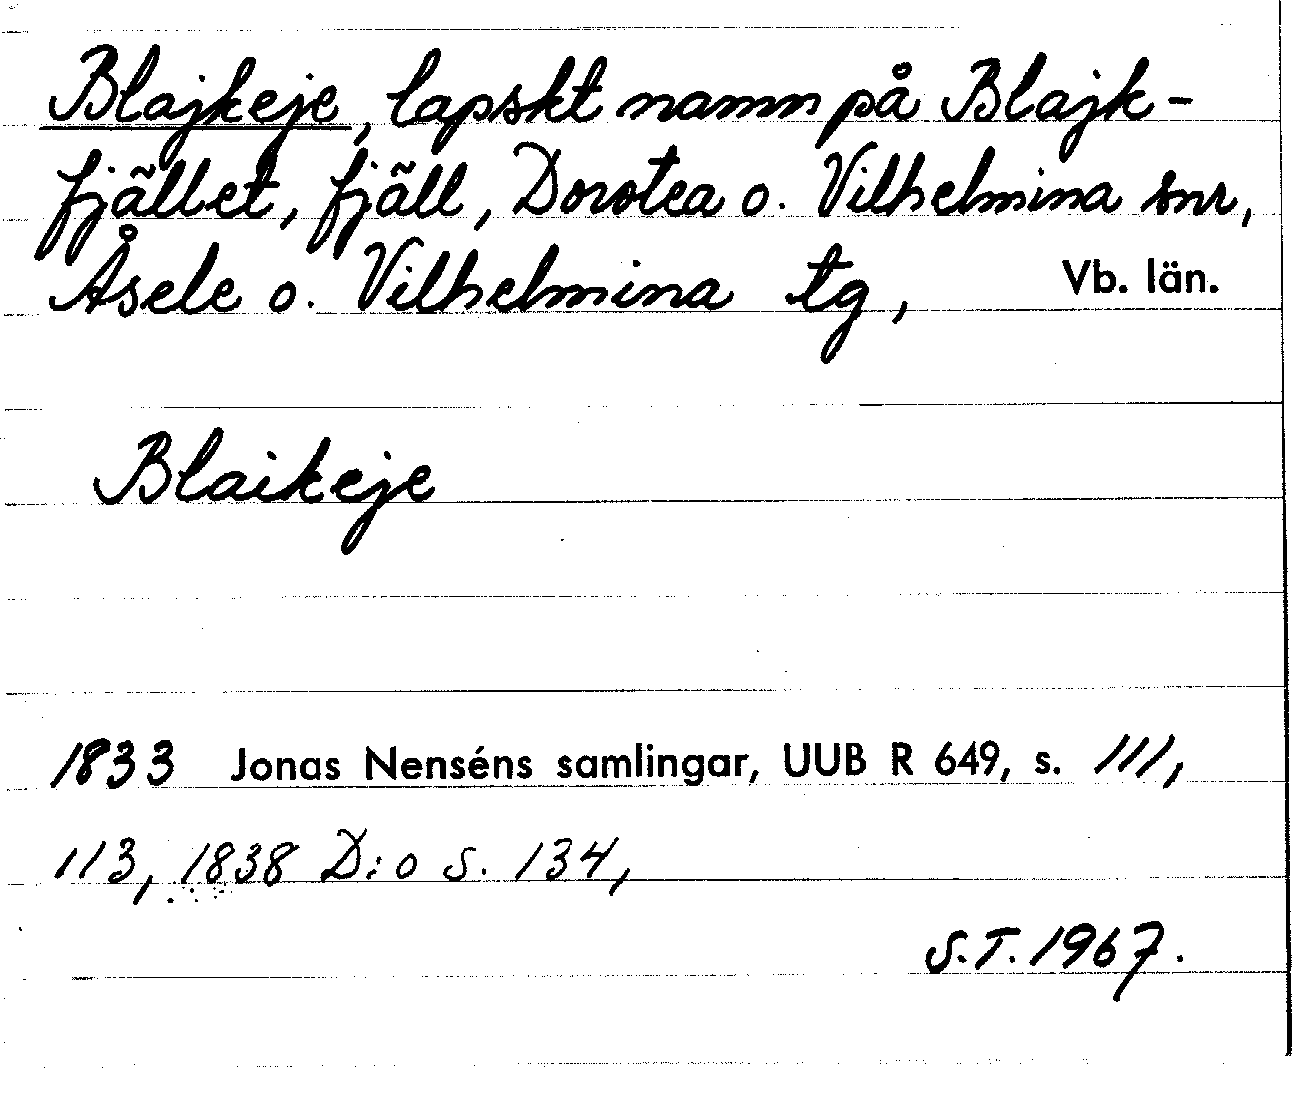 Blajkeje, lapskt namn på Blajk-
fjället, fjäll, Dorotea o. Vilhelmina snr,
Åsele o. Vilhelmina tg, Vb. län.
Blaikeje
1833 Jonas Nenséns samlingar, UUB R 649, s. 111,
113, 1838 D:o s. 134,
S.T. 1967.